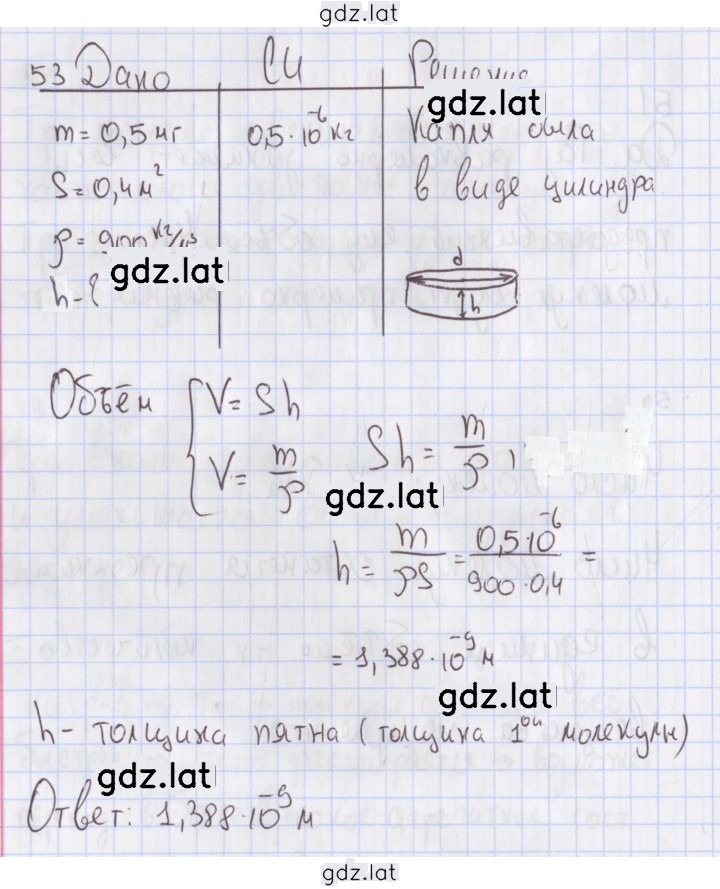 gdz.lat
53 Дано СИ Решение
gdz.lat
m = 0,5 мг 0,5·10⁻⁶ кг Капля была
S = 0,4 м² в виде цилиндра.
ρ = 900 кг/м³
gdz.lat
h - ?
d
h
Объём { V = Sh
V = m/ρ Sh = m/ρ,
gdz.lat
h = m/ρS = 0,5·10⁻⁶/900·0,4 =
= 1,388·10⁻⁹ м
gdz.lat
h - толщина пятна (толщина 1ой молекулы)
gdz.lat
Ответ: 1,388·10⁻⁹ м
gdz.lat